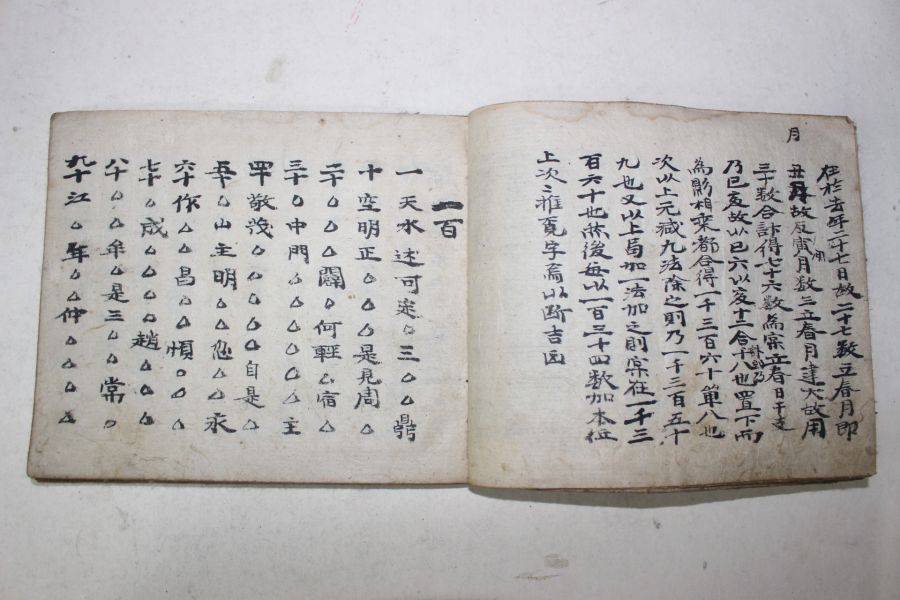 月
在於去年十二月二十七日故二十七數立春月即
丑月故及寅月數三立春月建大故用
三十數合計得七十六數為宗立春日干支
乃巳亥故以巳六以亥十二合十八也置下而
為影相乘都合得一千三百六十單八也
次以上元减九法除之則乃一千三百五十
九也又以上局加一法加之則宗在一千三
百六十也然後每以一百三十四數加本位
上次二推覓字焉以斷吉凶
一百
一天水述可定○三○△鼎
十空明正○△△是見周△
二十○△△闢○何輕△宿△
三十○中門○△△○△△主
四十敬茂○△△△△自是△
五十△山主明△△△△永
六十作△昌△惧○△△
七十△成△△△△趙△△
八十○△牟△是三○△常○
九十江△年△仲△△△△